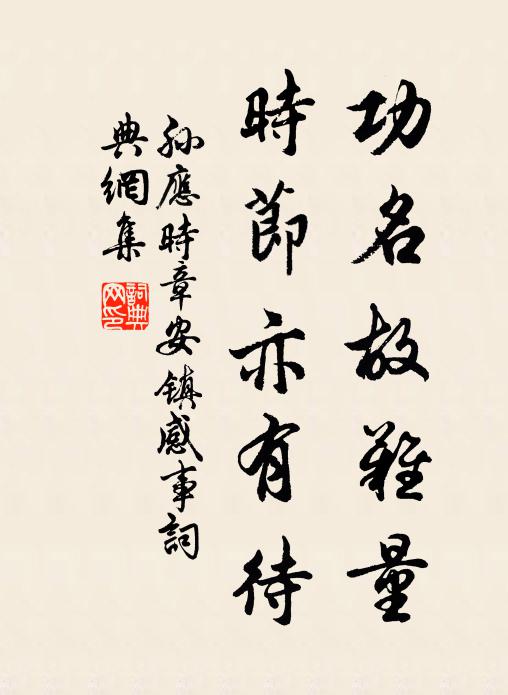 功名故難量
時節亦有待
孫應時章安鎮感事詞
典網集
詞典網印